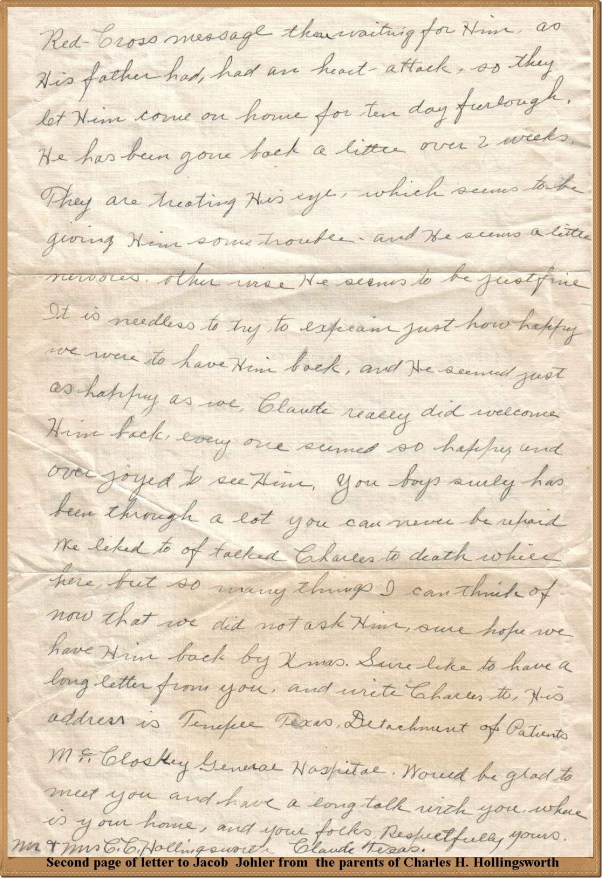 Red-Cross message then waiting for Him, as
His father had, had an heart-attack, so they
let Him come on home for ten day furlough.
He has been gone back a little over 2 weeks.
They are treating His eye, which seems to be
giving Him some trouble - and He seems a little
nervores. other wise He seems to be just fine
It is needless to try to expeain just how happy
we were to have Him back, and He seemed just
as happy as we, Claude really did welcome
Him back, every one seemed so happy and
over joyed to see Him. You boys surly has
been through a lot you can never be repaid
We liked to of talked Charles to death while
here, but so many things I can think of
now that we did not ask Him, sure hope we
have Him back by Xmas. Sure like to have a
long letter from you, and write Charles to, His
address is Temple Texas, Detachment of Patients
Mc Closkey General Hospital. Would be glad to
meet you and have a long talk with you. where
is your home, and your folks. Respectfully yours.
Mr + Mrs C.C. Hollingsworth Claude Texas.
Second page of letter to Jacob Johler from the parents of Charles H. Hollingsworth